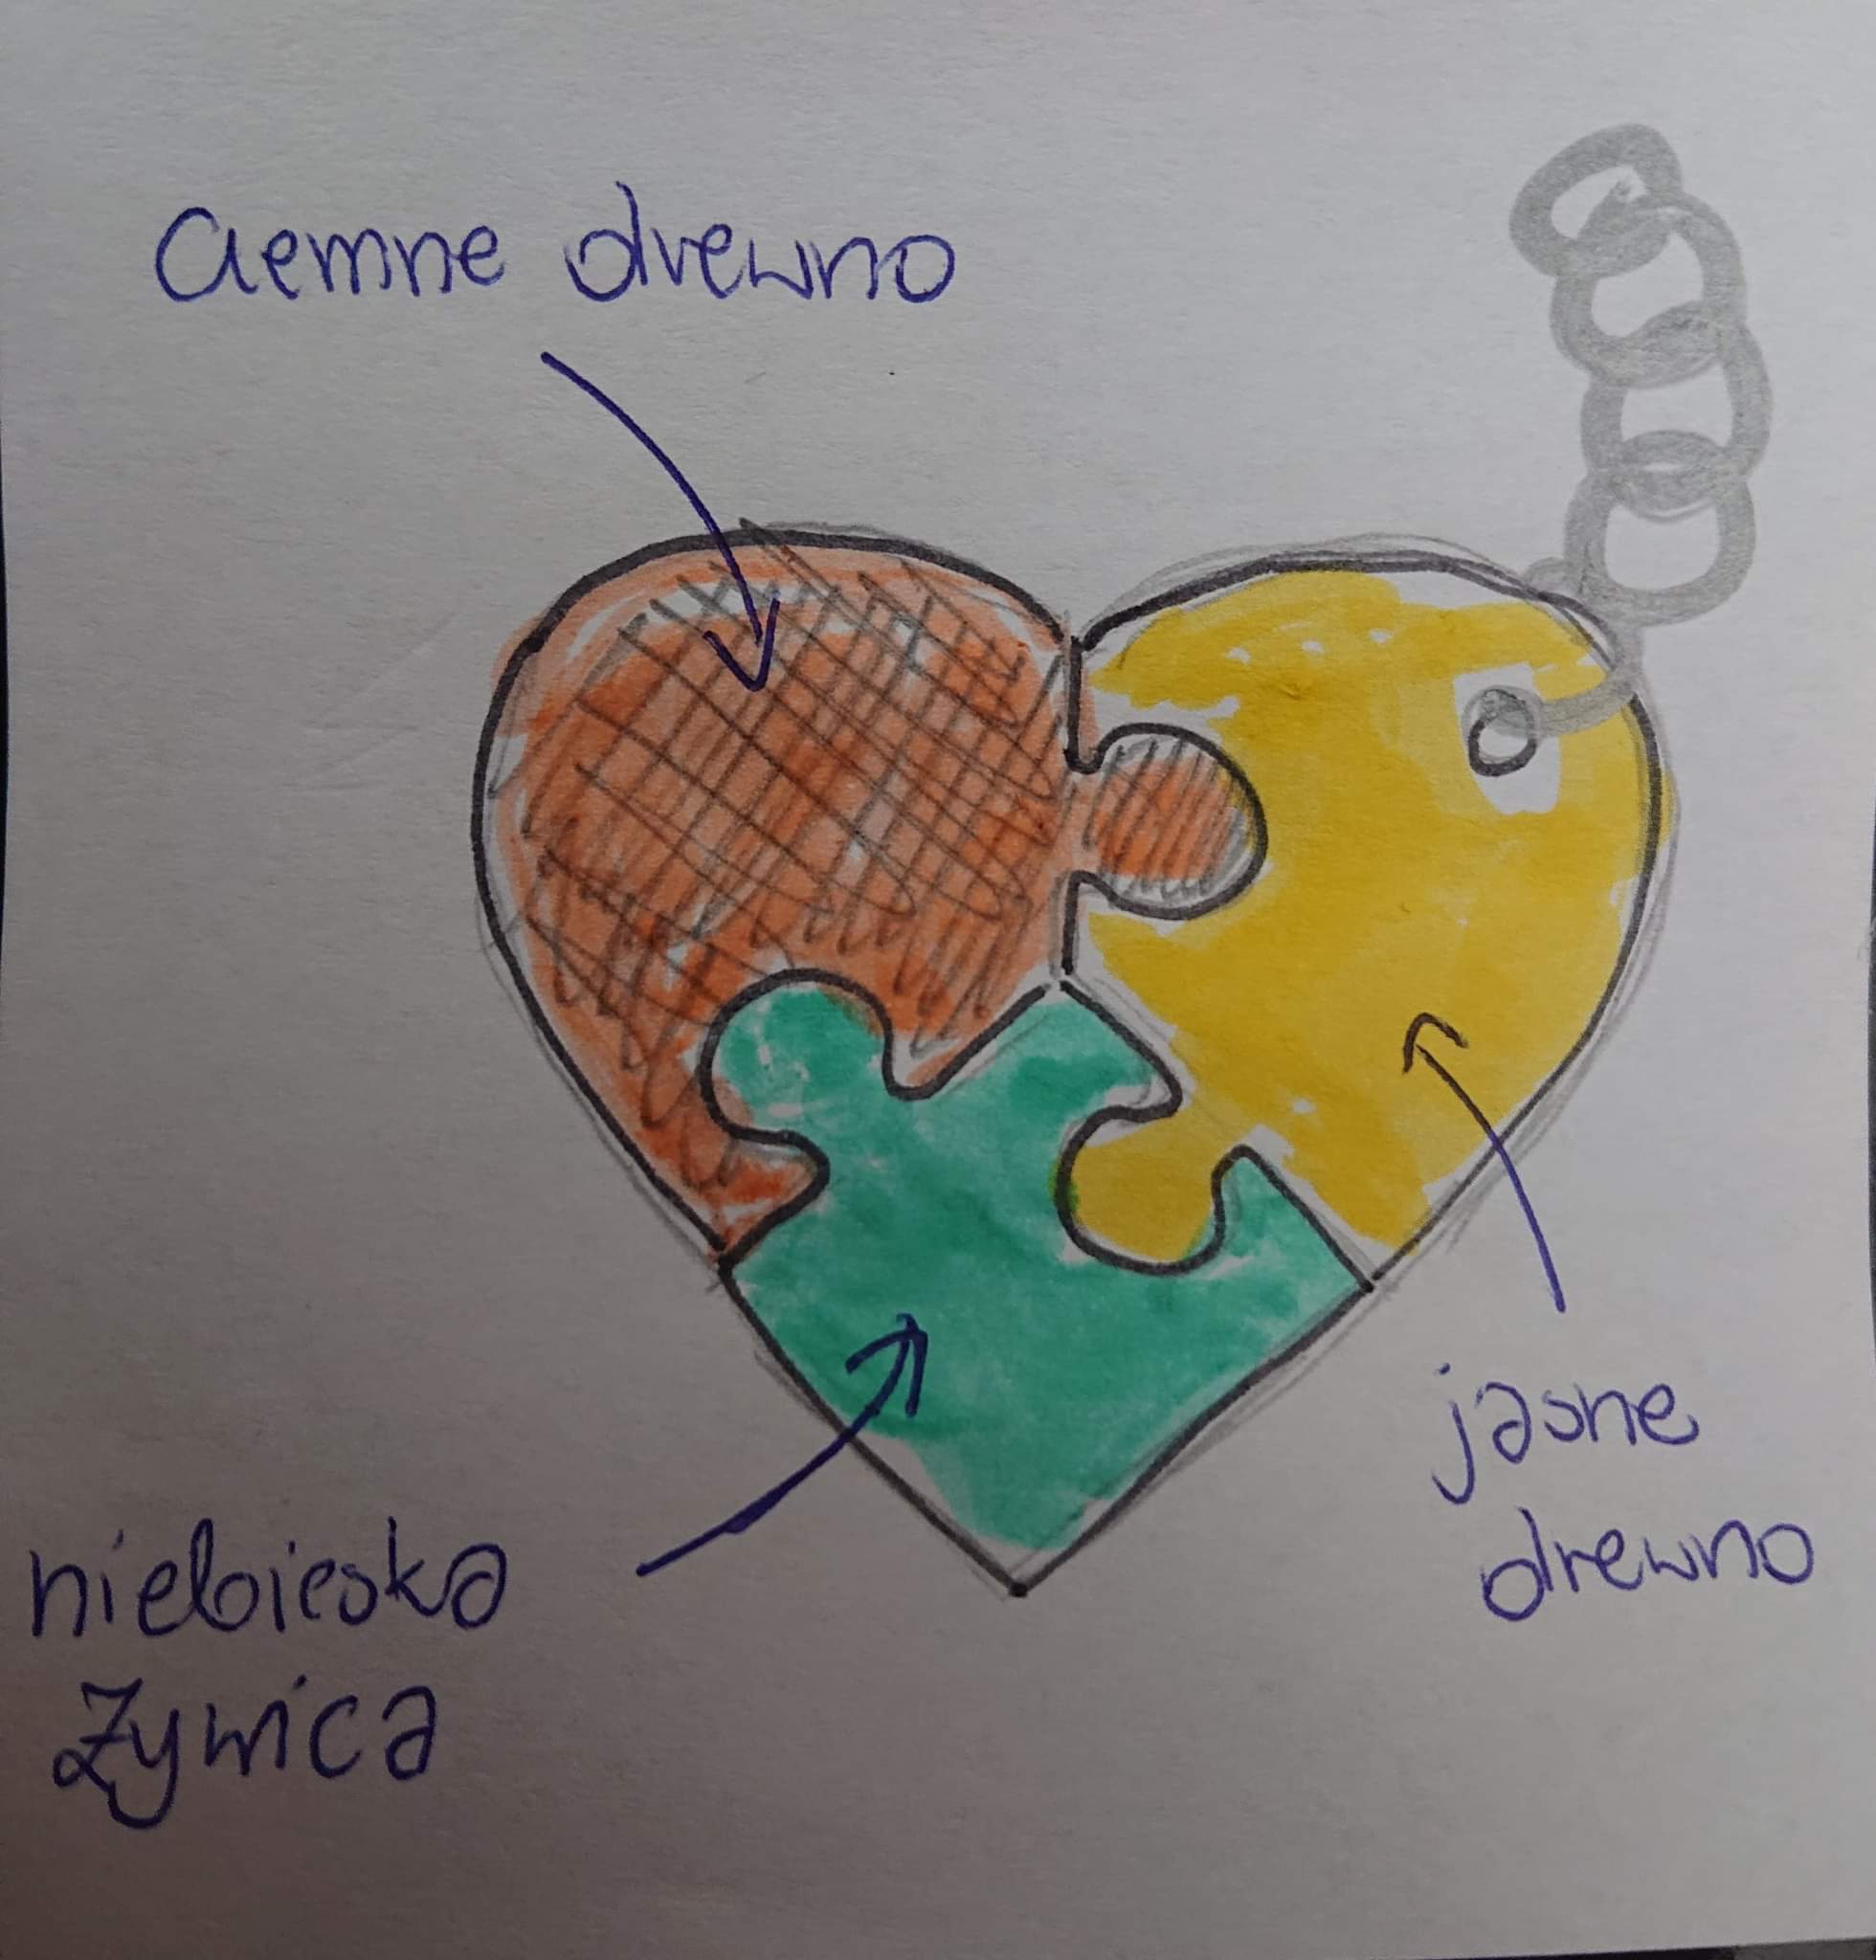 ciemne drewno
jasne
drewno
niebieska
żywica